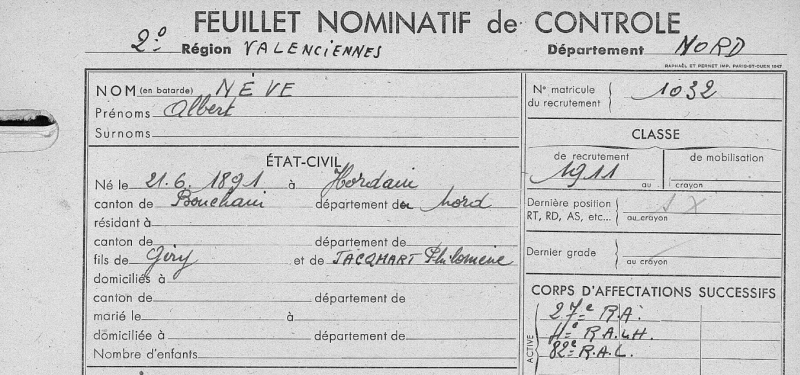 FEUILLET NOMINATIF de CONTROLE
2º Région VALENCIENNES Département NORD
RAPHAËL ET PERNET IMP. PARIS-ST-OUEN 1947
NOM (en batarde) NÈVE
Prénoms Albert
Surnoms
ÉTAT-CIVIL
Né le 21.6.1891 à Hordain
canton de Bouchain département de Nord
résidant à
canton de département de
fils de Géry et de JACQMART Philomène
domiciliés à
canton de département de
marié le à
domiciliée à département de
Nombre d'enfants
Nº matricule du recrutement 1032
CLASSE
de recrutement de mobilisation
1911 au crayon
Dernière position
RT, RD, AS, etc... au crayon
Dernier grade
au crayon
CORPS D'AFFECTATIONS SUCCESSIFS
ACTIVE
27e R.A.
4e R.A.L.H.
82e R.A.L.